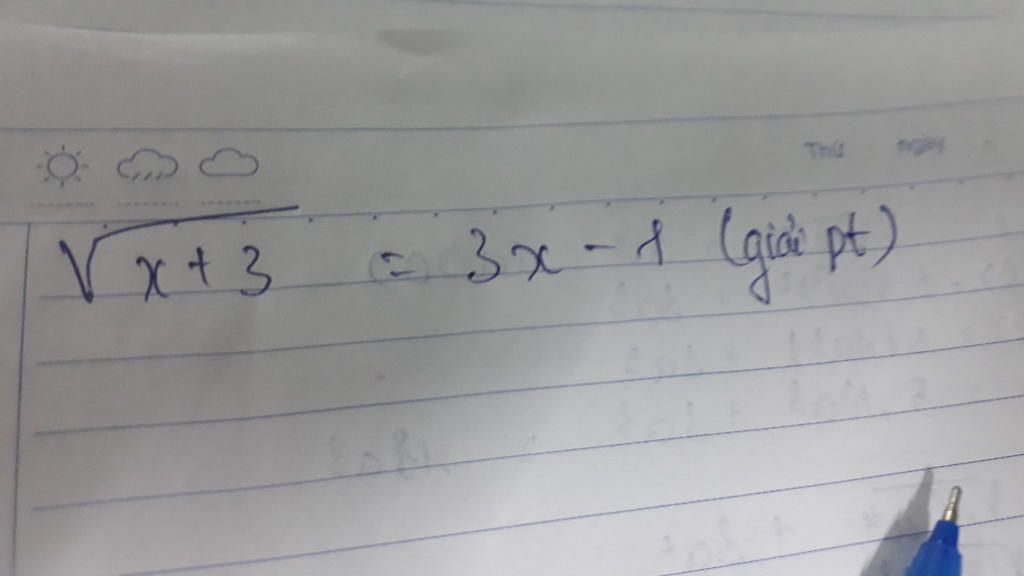 Thứ Ngày
√x+3 = 3x - 1 (giải pt)